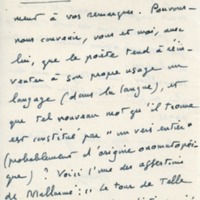 ment à vos remarques. Pouvons-
nous convenir, vous et moi, avec
lui, que le poète tend à réin-
venter à son propre usage un
langage (dans la langue), et
que tel nouveau mot qu'il trouve
est constitué par "un vers entier"
(probablement d'origine onomatopéi-
que) ? Voici l'une des assertions
de Mallarmé ; le tour de